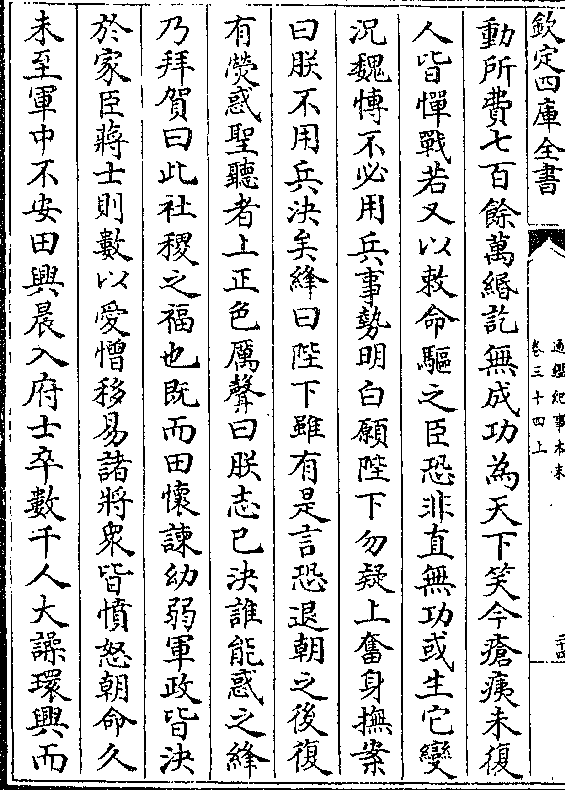 欽定四庫全書
通鑑紀事本末
卷三十四上
二十四
動所費七百餘萬緡訖無成功為天下笑今瘡痍未復
人皆憚戰若又以敕命驅之臣恐非直無功或生它變
況魏博不必用兵事勢明白願陛下勿疑上奮身撫案
曰朕不用兵決矣絳曰陛下雖有是言恐退朝之後復
有熒惑聖聽者上正色厲聲曰朕志已決誰能惑之絳
乃拜賀曰此社稷之福也既而田懷諫幼弱軍政皆決
於家臣蔣士則數以愛憎移易諸將衆皆憤怒朝命久
未至軍中不安田興晨入府士卒數千人大譟環興而